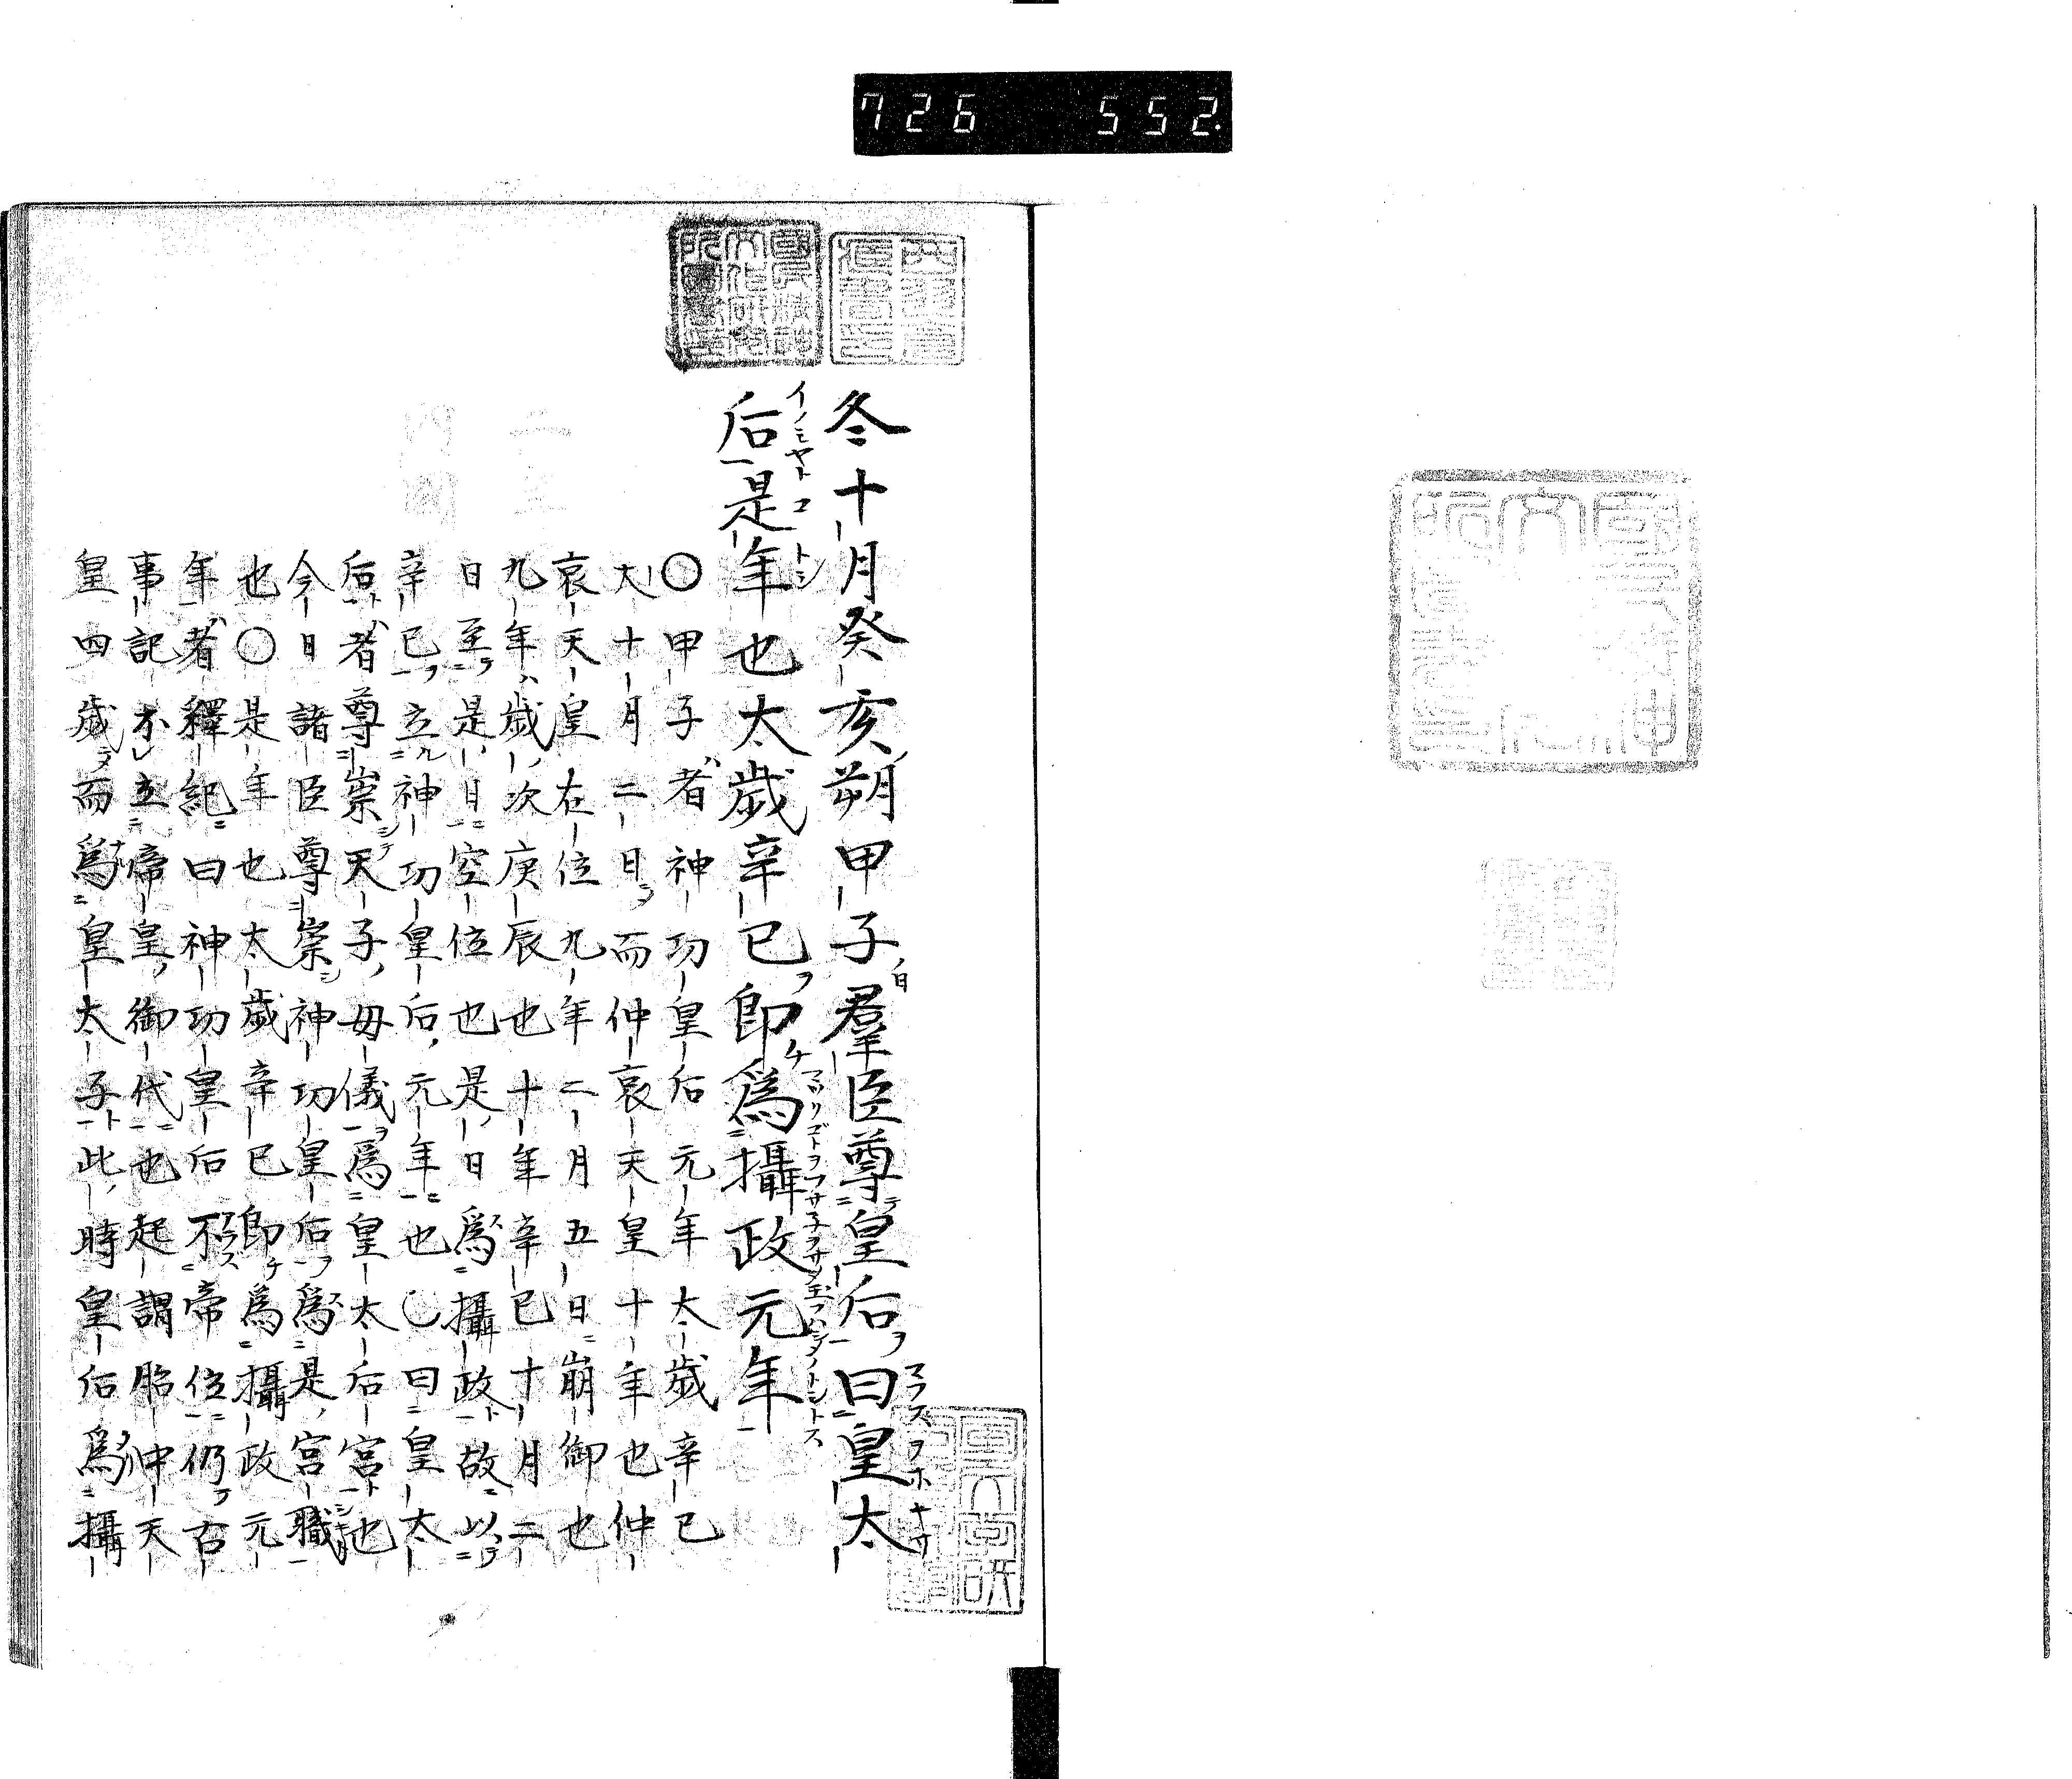 726 552
冬十月癸亥朔甲子羣臣尊皇后曰皇太
后是年也太歲辛巳即爲攝政元年
〇甲子者神功皇后元年太歲辛巳
大十月二日而仲哀天皇十年也仲
哀天皇在位九年二月五日崩御也
九年歲次庚辰也十年辛巳十月二
日至是日空位也是日爲攝政故以
辛巳立神功皇后元年也〇曰皇太
后者尊崇天子母儀爲皇太后宮也
今日諸臣尊崇神功皇后爲是宮職
也〇是年也太歲辛巳即爲攝政元
年者釋紀曰神功皇后不帝位仍古
事記不立帝皇御代也起謂胎中天
皇四歲而爲皇太子此時皇后爲攝